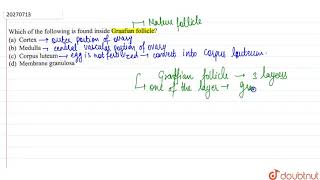 20270713
→ Mature follicle
Which of the following is found inside Graafian follicle?
(a) Cortex → outer portion of ovary
(b) Medulla → central vascular portion of ovary
(c) Corpus luteum → egg is not fertilized → converts into corpus luteum.
(d) Membrane granulosa
→ Graffian follicle → 3 layers
→ one of the layer →
doubtnut